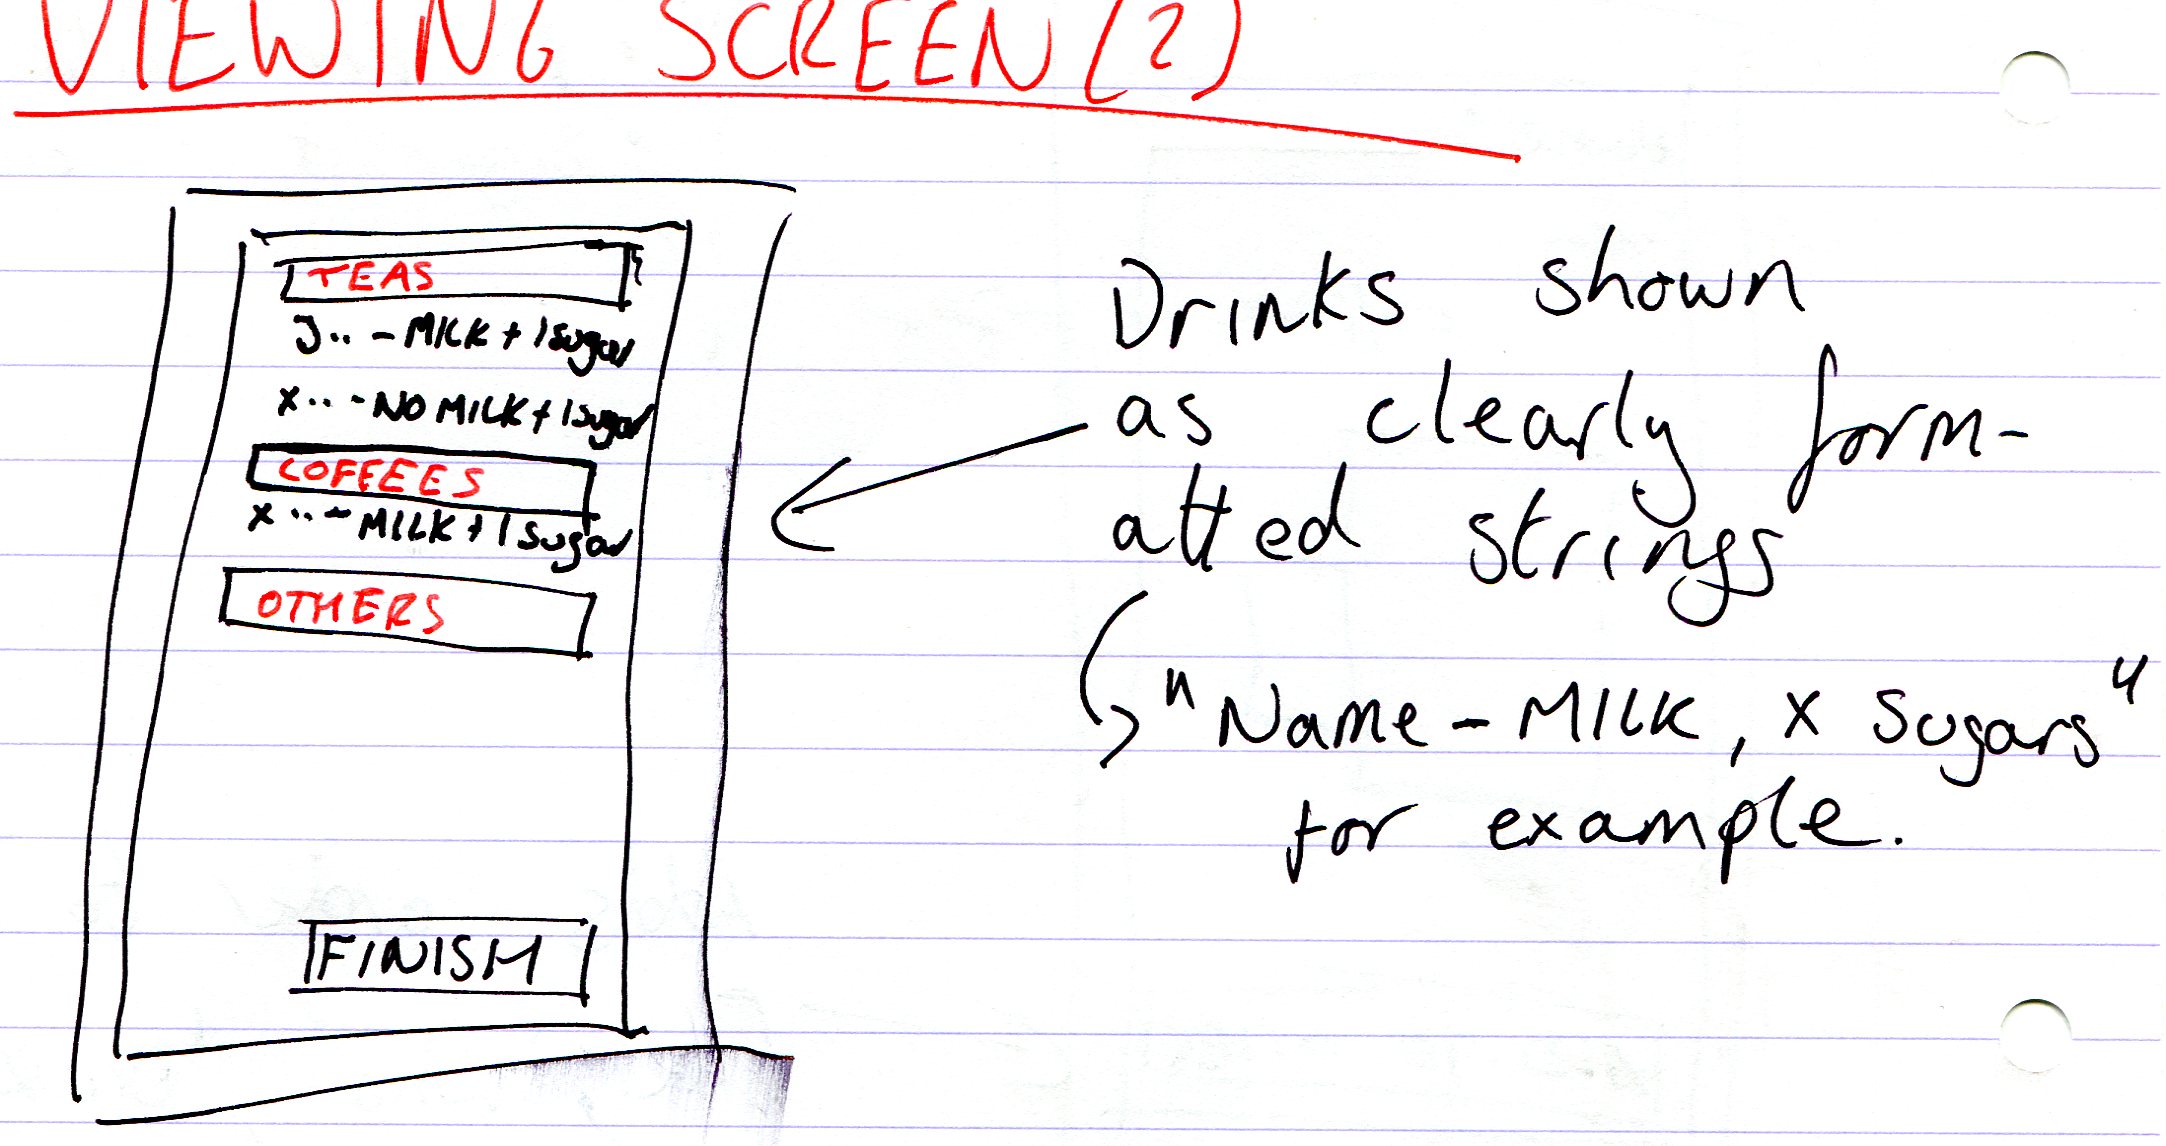 VIEWING SCREEN (2)
TEAS
J.. - MILK + 1 sugar
x... - NO MILK + 1 sugar
COFFEES
x ... - MILK + 1 sugar
OTHERS
FINISH
Drinks shown
as clearly form-
atted strings
"Name - MILK, x sugars"
for example.